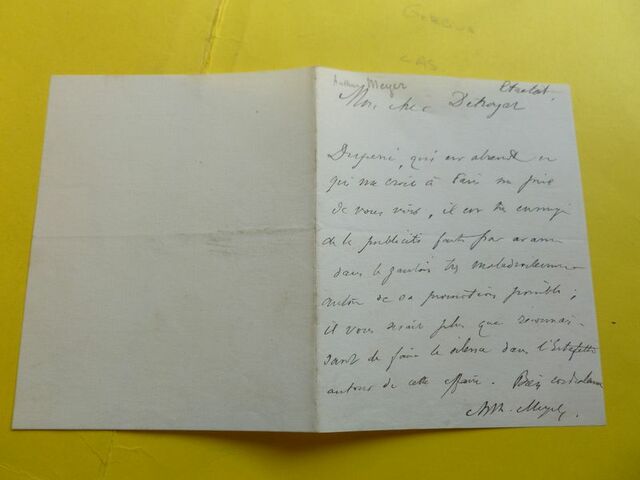 Arthur Meyer
Etretat,
Mon cher Detroyat
Duperré, qui est absent et
qui me croit à Paris me prie
de vous voir, il est très ennuyé
de la publicité faite par avance
dans le Gaulois très maladroitement
autour de sa promotion possible;
il vous serait plus que reconnais-
sant de faire le silence dans l'Estafette
autour de cette affaire. Bien cordialement
Arth. Meyer.